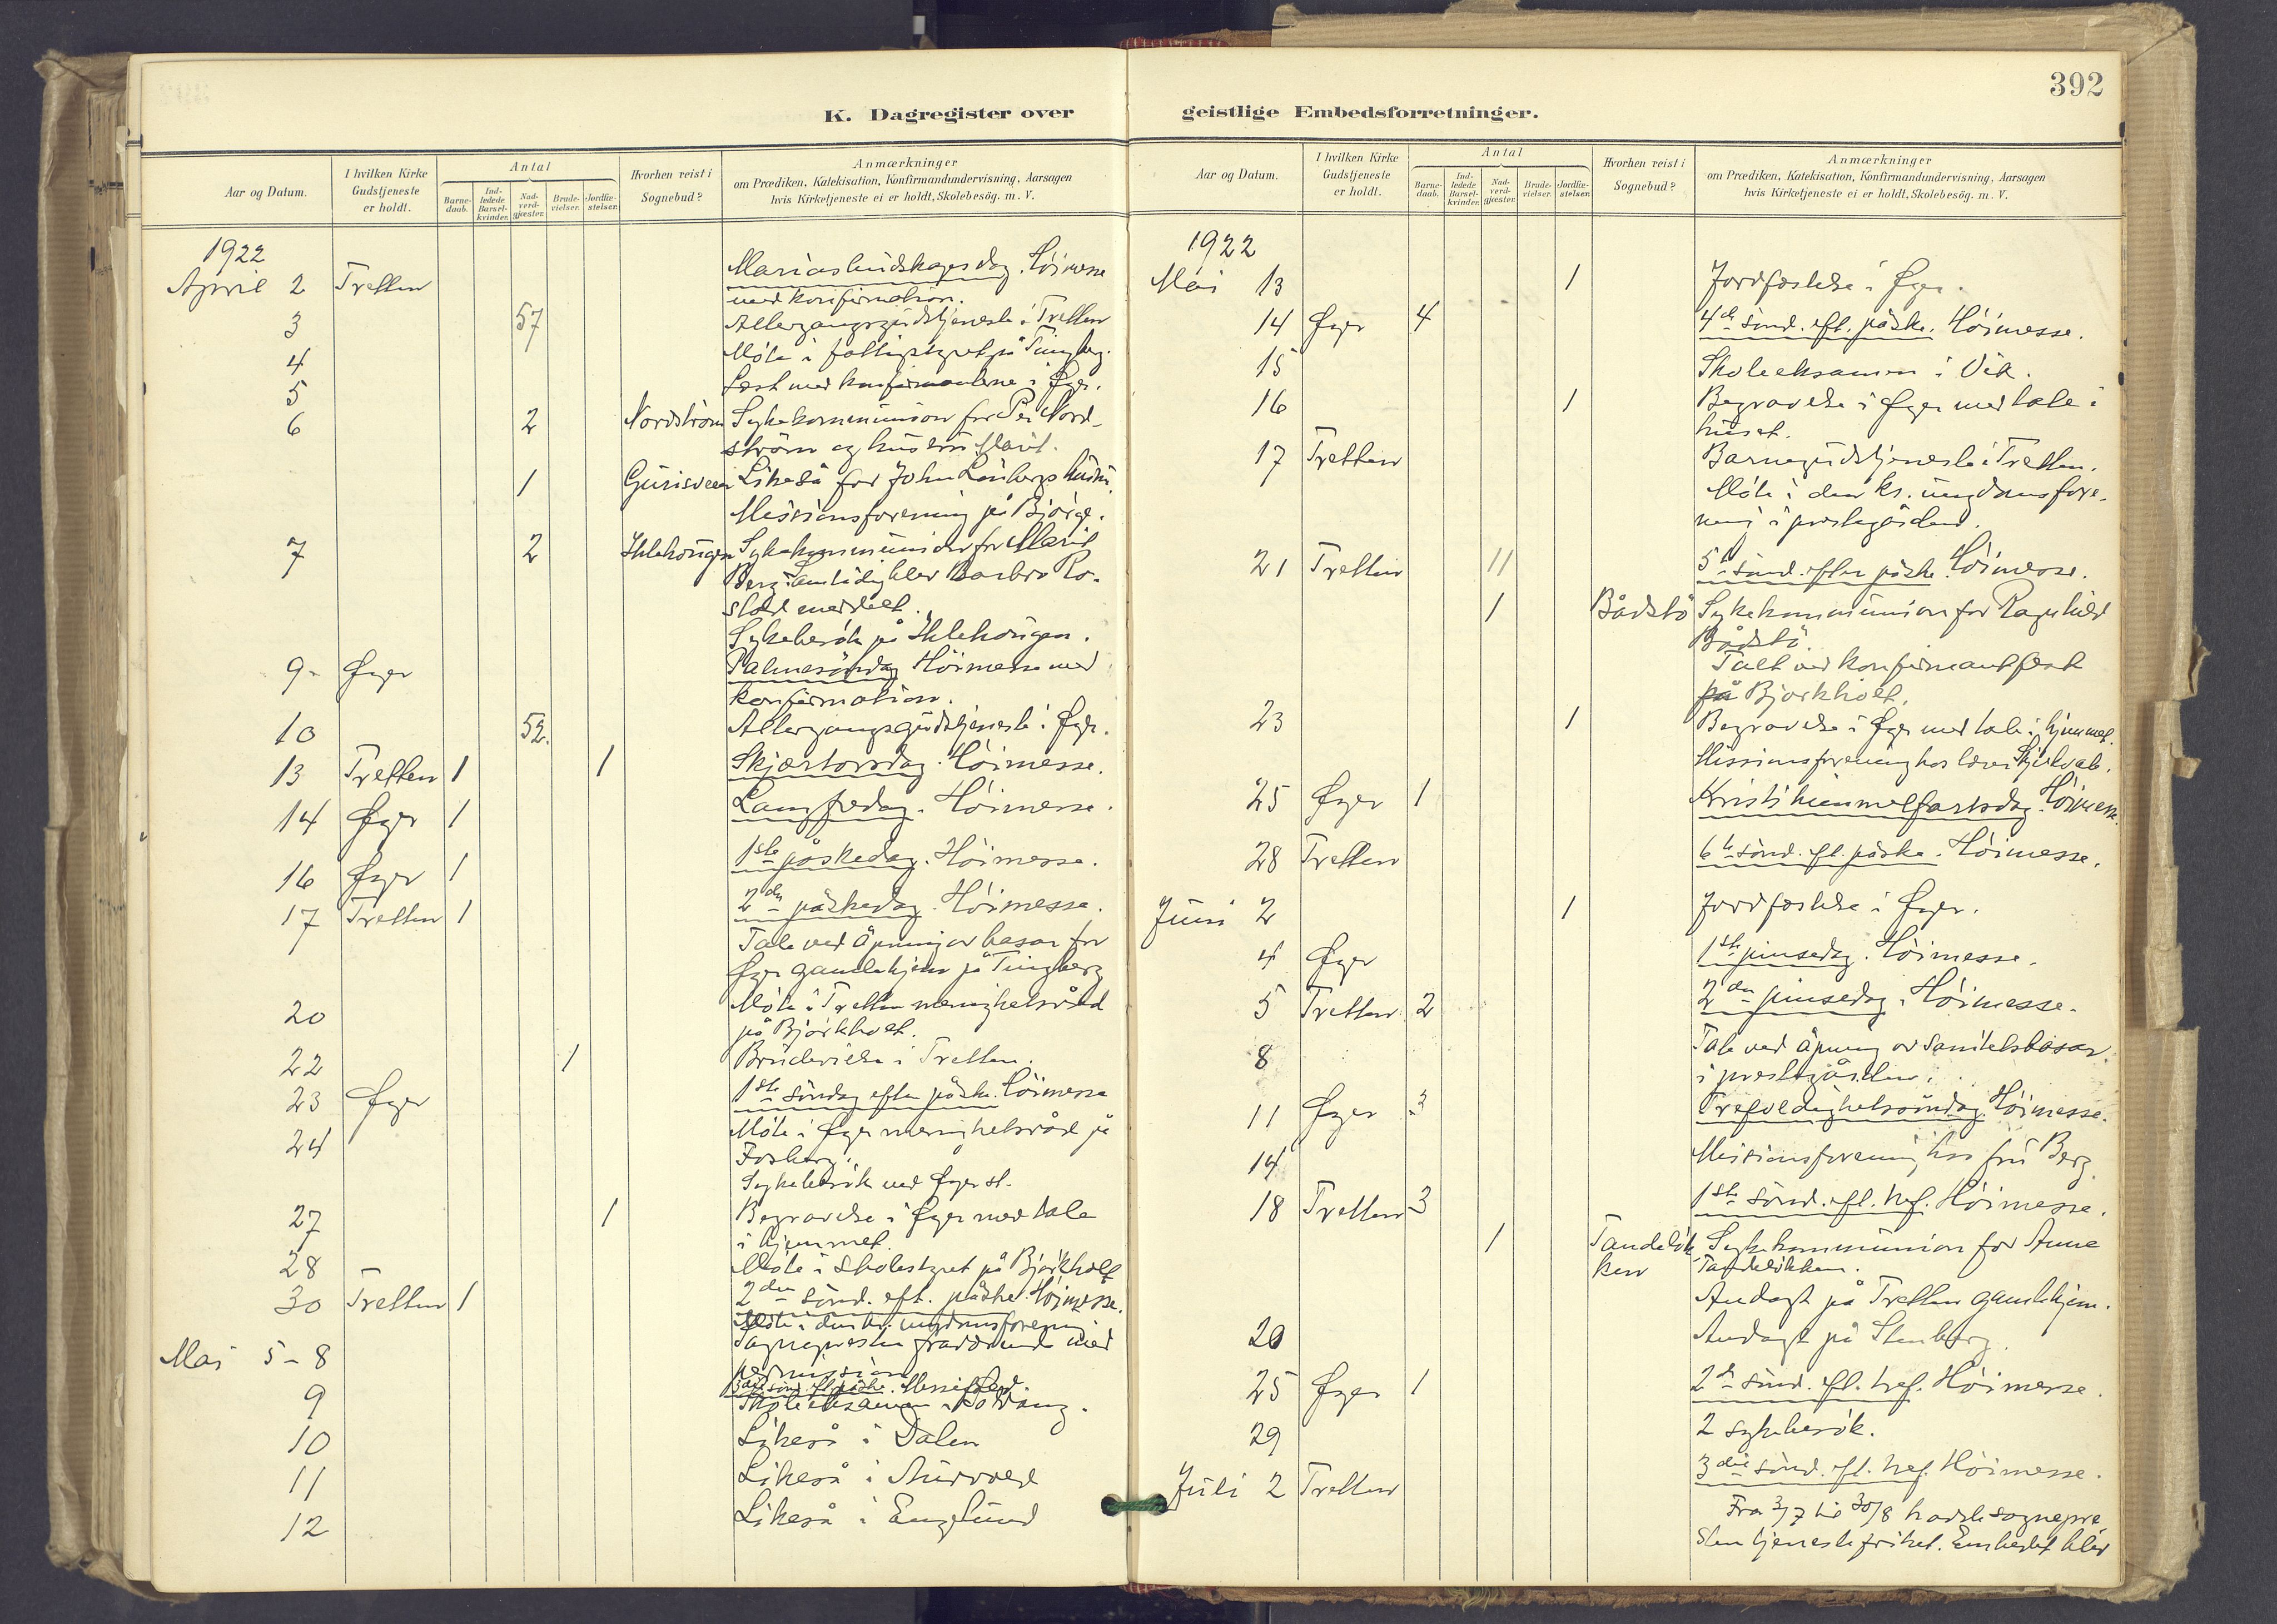 392
K. Dagregister over geistlige Embedsforretninger.
Aar og Datum. I hvilken Kirke Gudstjeneste er holdt. Antal Barnedaab. Indledede Barselkvinder. Nadverdgjæster. Brudevielser. Jordfæstelser. Hvorhen reist i Sognebud? Anmærkninger om Prædiken, Katekisation, Konfirmandundervisning, Aarsagen hvis Kirketjeneste ei er holdt, Skolebesög. m. V.
1922
April 2 Tretten Mariæ budskapsdag. Höimesse
med konfirmation.
3 57 Altergangsgudstjeneste i Tretten
4 Möte i fattigstyret på Tingberg.
5 Læst med konfirmanterne i Øyer.
6 2 Nordström Sykekommunion for Per Nord-
ström og hustru Marit.
1 Likeså for John Lönbergs hustru.
Missionsforening på Björge.
7 2 Sykekommunion for Marit
Berg. Samtidig blev Barbro Ro-
stad meddelt.
Sykebesök på
9 - Øyer Palmesöndag Höimesse med
konfirmation.
10 52. Altergangsgudstjeneste i Øyer.
13 Tretten 1 1 Skjærtorsdag. Höimesse.
14 Øyer 1 Langfredag. Höimesse.
16 Øyer 1 1ste påskedag. Höimesse.
17 Tretten 1 2den påskedag. Höimesse.
Tale ved åpning av basar for
Øyer gamlehjem på Tingberg
20 Möte i Tretten menighetsråd
på Björkholt.
22 1 Brudevielse i Tretten.
23 Øyer 1ste söndag efter påske. Höimesse
24 Möte i Øyer menighetsråd på
Fosberg.
Sykebesök ved Øyer st.
27 1 Begravelse i Øyer med tale
i hjemmet.
28 Möte i skolestyret på Björkholt
30 Tretten 1 2den sönd. eft. påske. Höimesse.
Möte i den kr. ungdomsforening.
Mai 5 - 8 Sognepresten fraværende med
permission
3die sönd. eft. påske. Messefald.
9 Skoleeksamen i
10 Likeså i Dalen
11 Likeså i
12 Likeså i Englund
Aar og Datum. I hvilken Kirke Gudstjeneste er holdt. Antal Barnedaab. Indledede Barselkvinder. Nadverdgjæster. Brudevielser. Jordfæstelser. Hvorhen reist i Sognebud? Anmærkninger om Prædiken, Katekisation, Konfirmandundervisning, Aarsagen hvis Kirketjeneste ei er holdt, Skolebesög. m. V.
1922
Mai 13 1 Jordfæstelse i Øyer.
14 Øyer 4 4de sönd. eft. påske. Höimesse.
15 Skoleeksamen i Vik.
16 1 Begravelse i Øyer med tale i
huset.
17 Tretten Barnegudstjeneste i Tretten.
Möte i den kr. ungdomsfore-
ning i prestegården.
21 Tretten 11 5te sönd. efter påske. Höimesse.
1 Bådstö Sykekommunion for Ragnhild
Bådstö.
Talt ved konfirmantfest
på Björkholt.
23 1 Begravelse i Øyer med tale i hjemmet.
Missionsforening hos lærer
25 Øyer 1 Kristi himmelfartsdag. Höimesse.
28 Tretten 6te sönd. eft. påske. Höimesse.
Juni 2 1 Jordfæstelse i Øyer.
4 Øyer 1ste pinsedag. Höimesse.
5 Tretten 2 2den pinsedag. Höimesse.
8 Tale ved åpning av sanitetsbasar
i prestegården.
11 Øyer 3 Trefoldighetssöndag. Höimesse.
14 Missionsforening hos fru Berg.
18 Tretten 3 1ste sönd. eft. tref. Höimesse.
1 Tandelök- Sykekommunion for Anne
ken Tandelökken.
Andagt på Tretten gamlehjem.
20 Andagt på Stenberg.
25 Øyer 1 2den sönd. eft. tref. Höimesse.
29 2 sykebesök.
Juli 2 Tretten 3die sönd. eft. tref. Höimesse.
Fra 3/7 til 30/8 hadde sognepre-
sten tjenestefrihet. Embedet blev